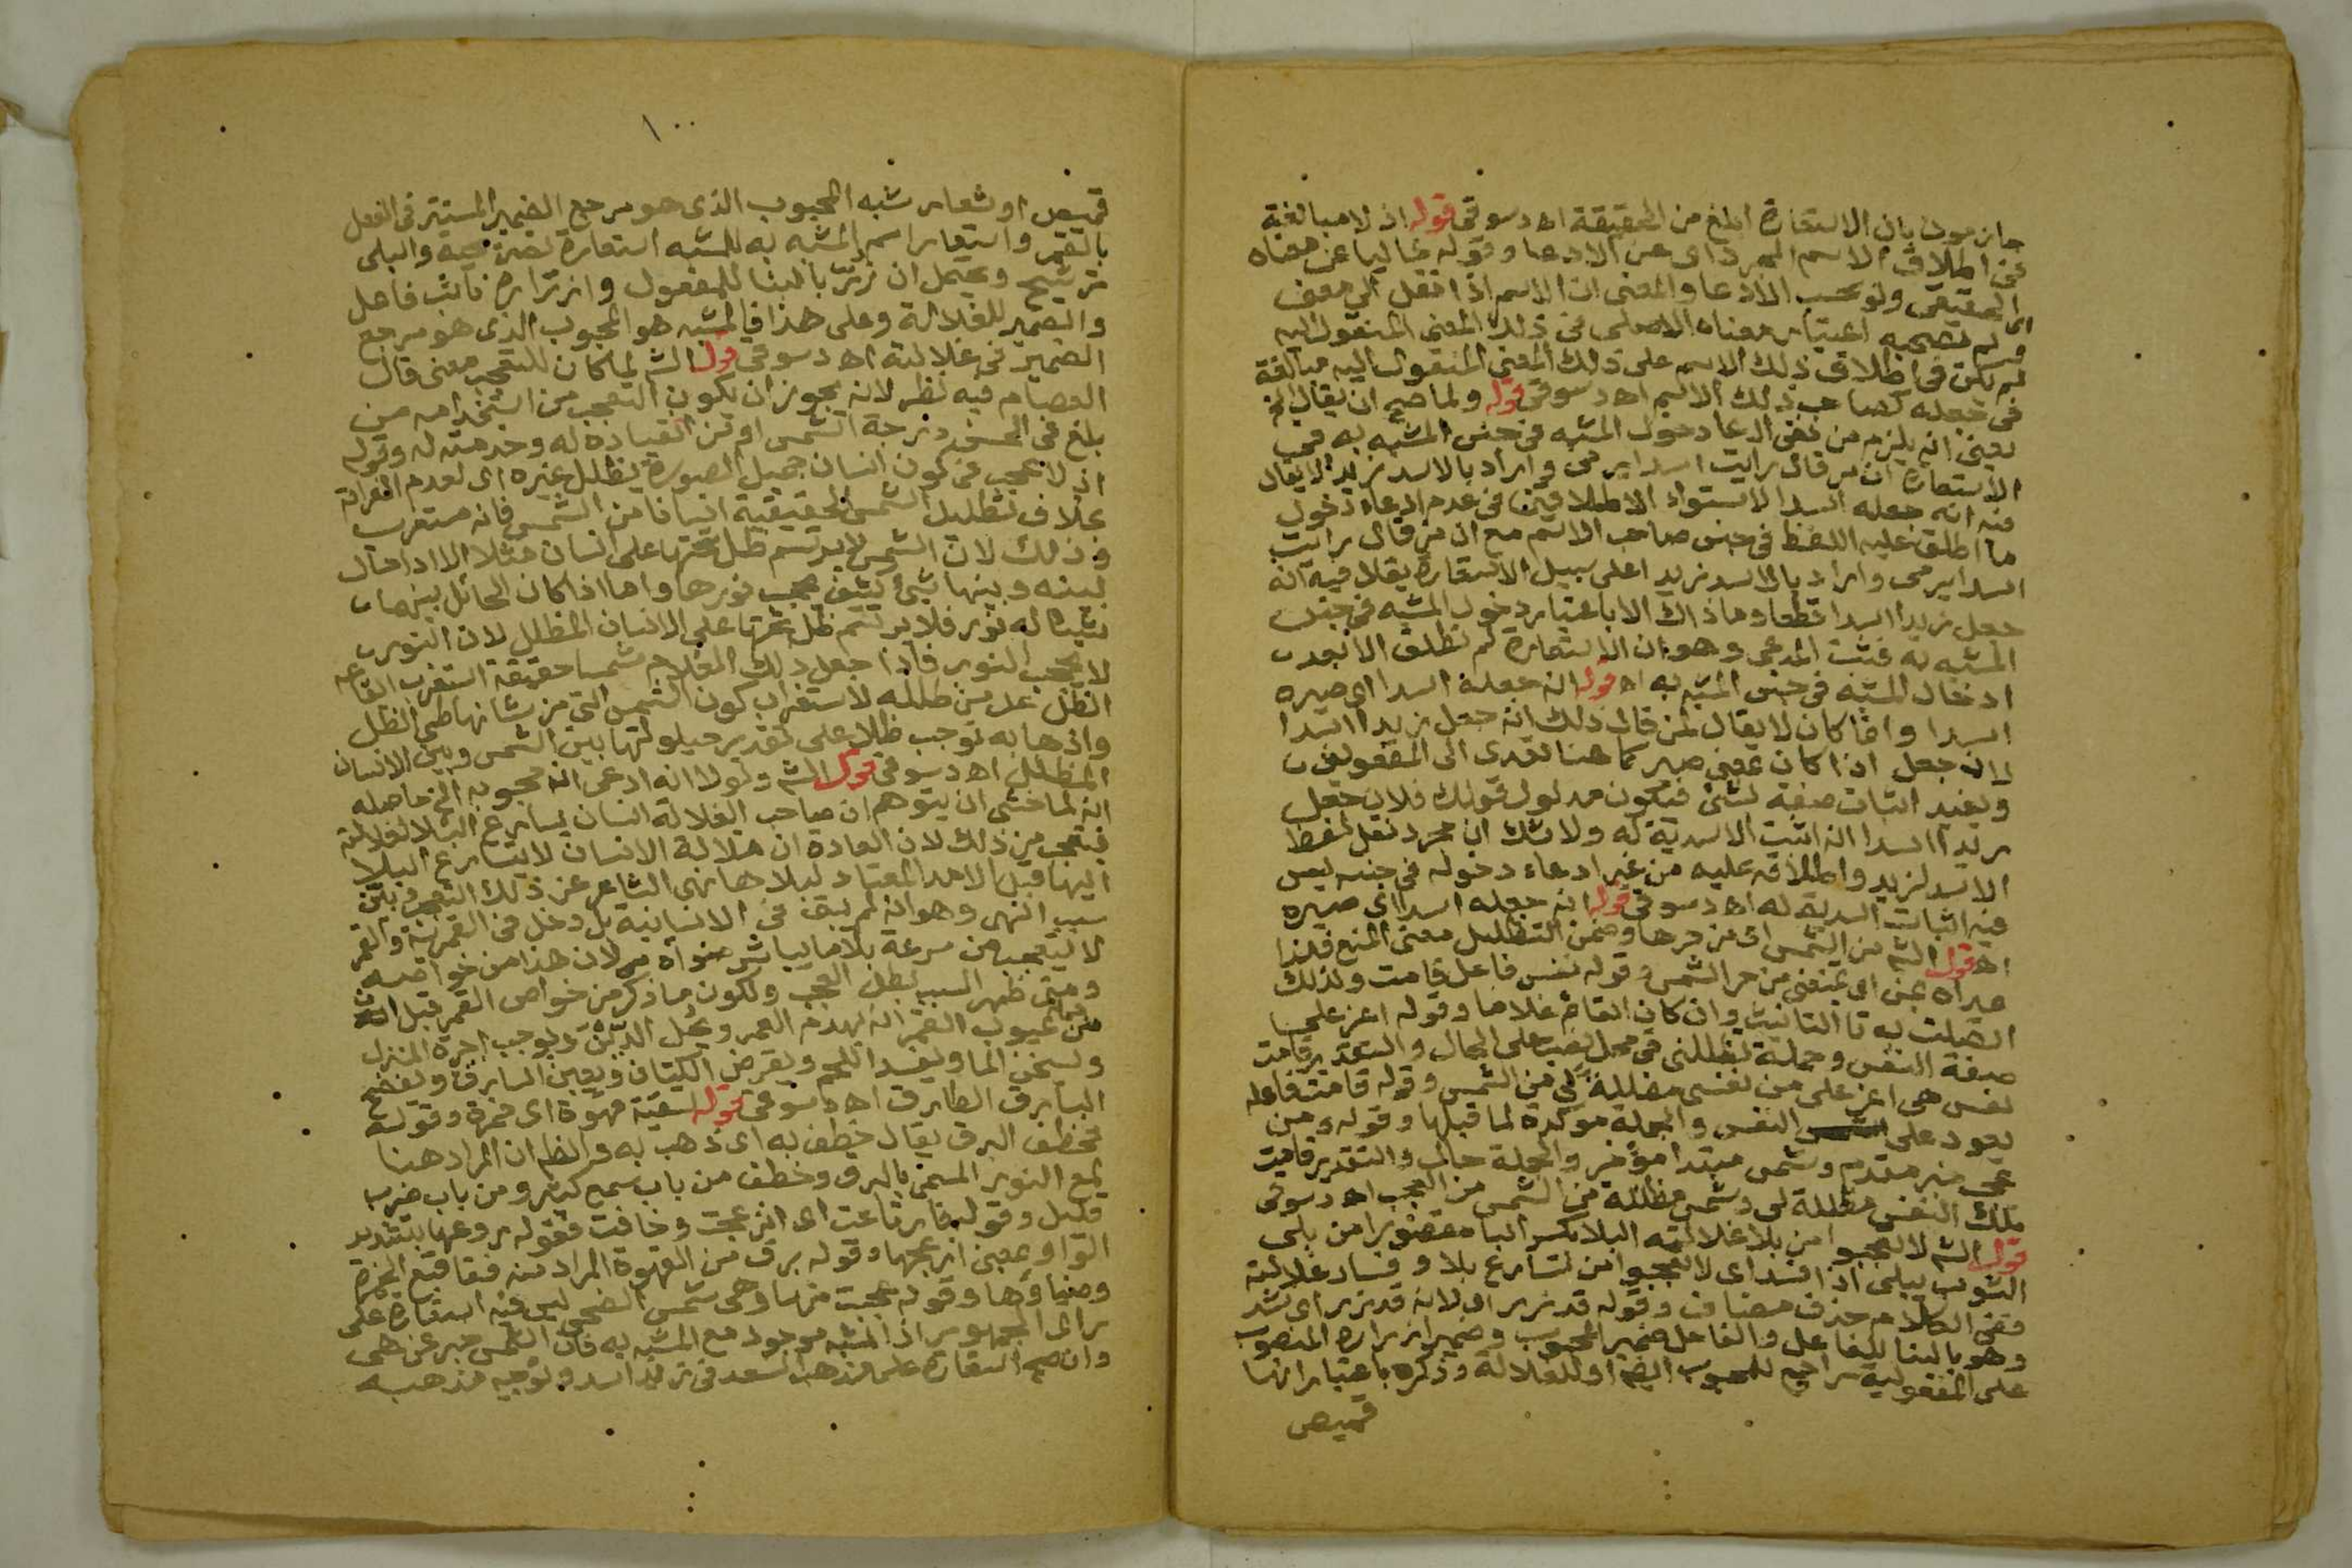 جازمون بان الاستعارة ابلغ من الحقيقة اه دسوقي قوله اذ لا مبالغة
في اطلاق الاسم المجرد اى عن الادعا وقوله خاليا عن معناه
الحقيقى ولو بحسب الادعا والمعنى ان الاسم اذا نقل الى معنى
ولم تصحبه اعتبار معناه الاصلى في ذلك المعنى المنقول اليه
لم يكن في اطلاق ذلك الاسم على ذلك المعنى المنقول اليه مبالغة
في جعله كصاحب ذلك الاسم اه دسوقي قوله ولما صح ان يقال الخ
يعنى انه يلزم من نفى ادعا دخول المشبه في جنس المشبه به في
الاستعارة ان من قال رايت اسدا يرمى واراد بالاسد زيدا لا يقال
فيه انه جعله اسدا لاستواء الاطلاقين في عدم ادعاء دخول
ما اطلق عليه اللفظ في جنس صاحب الاسم مع ان من قال رايت
اسدا يرمى واراد بالاسد زيدا على سبيل الاستعارة يقال فيه انه
جعل زيدا اسدا قطعا وما ذاك الا باعتبار دخول المشبه في جنس
المشبه به فثبت المدعى وهو ان الاستعارة لم تطلق الا بعد
ادخال المشبه في جنس المشبه به اه قوله انه جعله اسدا اى صيره
اسدا وانما كان لا يقال لمن قال ذلك انه جعل زيدا اسدا
لان جعل اذا كان بمعنى صير كما هنا تعدى الى المفعولين
ويفيد اثبات صفة لشئ فيكون مدلول قولك فلان جعل
زيدا اسدا انه اثبت الاسدية له ولا شك ان مجرد نقل لفظ
الاسد لزيد واطلاقه عليه من غير ادعاء دخوله في جنسه ليس
فيه اثبات اسدية له اه دسوقي قوله انه جعله اسدا اى صيره
اه قول الشم من الشمس اى من حرها وضمن التظليل معنى المنع فلذا
عداه بمن اى تمنعنى من حر الشمس وقوله نفس فاعل قامت ولذلك
اتصلت به تا التانيث وان كان القائم غلاما وقوله اعز على
صفة النفس وجملة تظللنى في محل نصب على الحال والتقدير قامت
نفس هى اعز على من نفسى مظللة لى من الشمس وقوله قامت فاعله
يعود على النفس والجملة موكدة لما قبلها وقوله ومن
عجب خبر مقدم وشمس مبتدا مؤخر والجملة حال والتقدير قامت
تلك النفس مظللة لى وشمس مظللة من الشمس من العجب اه دسوقي
قول الشم لا تعجبوا من بلا غلالته البلا بكسر البا مقصورا من بلى
الثوب يبلى اذا افسد اى لا تعجبوا من تسارع بلا وفساد غلالته
ففى الكلام حذف مضاف وقوله قد زر اى لانه قد زر اى شد
وهو بالبنا للفاعل والفاعل ضمير المحبوب وضمير ازراره المنصوب
على المفعولية راجع للمحبوب ايضا او للغلالة وذكره باعتبار انها
قميص
١٠٠
قميص او شعار شبه المحبوب الذى هو مرجع الضمير المستتر في الفعل
بالقمر واستعار اسم المشبه به للمشبه استعارة تصريحية والبلى
ترشيح ويحتمل ان زر بالبنا للمفعول وازراره نائب فاعل
والضمير للغلالة وعلى هذا فالمشبه هو المحبوب الذى هو مرجع
الضمير في غلالته اه دسوقي قول الشم لما كان للتعجب معنى قال
العصام فيه نظر لانه يجوز ان يكون التعجب من استخدامه من
بلغ في الحسن درجة الشمس او من انقياده له وخدمته له وقوله
اذ لا عجب في كون انسان جميل الصورة يظلل غيره اى لعدم الغرابة
بخلاف تظليل الشمس الحقيقية انسانا من الشمس فانه مستغرب
وذلك لان الشمس لا يرتسم ظل تحتها على انسان مثلا الا اذا حال
بينه وبينها شئ كثيف يحجب نورها واما اذا كان الحائل بينهما
شيئا له نور فلا يرتسم ظل تحتها على الانسان المظلل لان النور
لا يحجب النور فاذا جعل ذلك الغلام شمسا حقيقة استغرب ايقاعه
الظل على من ظلله لاستغراب كون الشمس التى من شانها طى الظل
واذهابه توجب ظلا على تقدير حيلولتها بين الشمس وبين الانسان
المظلل اه دسوقي قول الشم ولولا انه ادعى انه محبوبه الخ حاصله
انه لما خشى ان يتوهم ان صاحب الغلالة انسان يسارع البلا لغلالته
فيتعجب من ذلك لان العادة ان غلالة الانسان لا يتسارع البلا
اليها قبل الامد المعتاد لبلاها نهى الشاعر عن ذلك التعجب وبين
سبب النهى وهو انه لم يبق في الانسانية بل دخل في القمرية والقمر
لا يتعجب من سرعة بلا ما يباشر ضوءه لان هذا من خواصه
ومتى ظهر السبب بطل العجب ولكون ما ذكر من خواص القمر قيل
من عيوب القمر انه يهدم العمر ويحل الدين ويوجب اجرة المنزل
ويسخن الما ويفسد اللحم ويقرض الكتان ويعين السارق ويفضح
السارق الطارق اه دسوقي قوله لسقية قهوة اى خمرة وقوله
تخطف البرق يقال خطف به اى ذهب به والظم ان المراد هنا
لمع النور المسمى بالبرق وخطف من باب سمع كثير ومن باب ضرب
قليل وقوله فارتاعت اى انزعجت وخافت فقوله روعها بتشديد
الواو بمعنى ازعجها وقوله برق من القهوة المراد منه فقاقيع الخمرة
وضياؤها وقوله عجبت منها وهى شمس الضحى ليس فيه استعارة على
راى الجمهور اذ المشبه موجود مع المشبه به فان الشمس خبر عن هى
وان صح استعارة على مذهب السعد في زيد اسد وتوجيه مذهبه